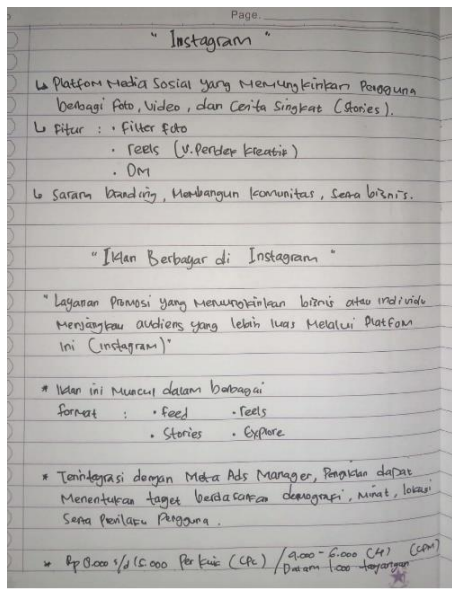 Page.
" Instagram "
↳ Platfom Media Sosial yang Memungkinkan Pengguna
berbagi foto, video, dan cerita singkat (stories).
↳ Fitur : • filter foto
• reels (v. Pendek kreatif)
• DM
↳ Saran branding, Membangun komunitas, serta bisnis.
" Iklan Berbayar di Instagram "
" Layanan Promosi yang Memungkinkan bisnis atau individu
Menjangkau audiens yang lebih luas Melalui Platfom
ini (instagram) "
* Iklan ini Muncul dalam berbagai
format : • feed • reels
• Stories • Explore
* Terintegrasi dengan Meta Ads Manager, Pengiklan dapat
Menentukan taget berdasarkan demografi, Minat, lokasi
Serta Perilaku Pengguna.
* s/d 15.000 Per klik (CPC) / 9.000 - 6.000 (CPM)
Dalam 1.000 tayangan